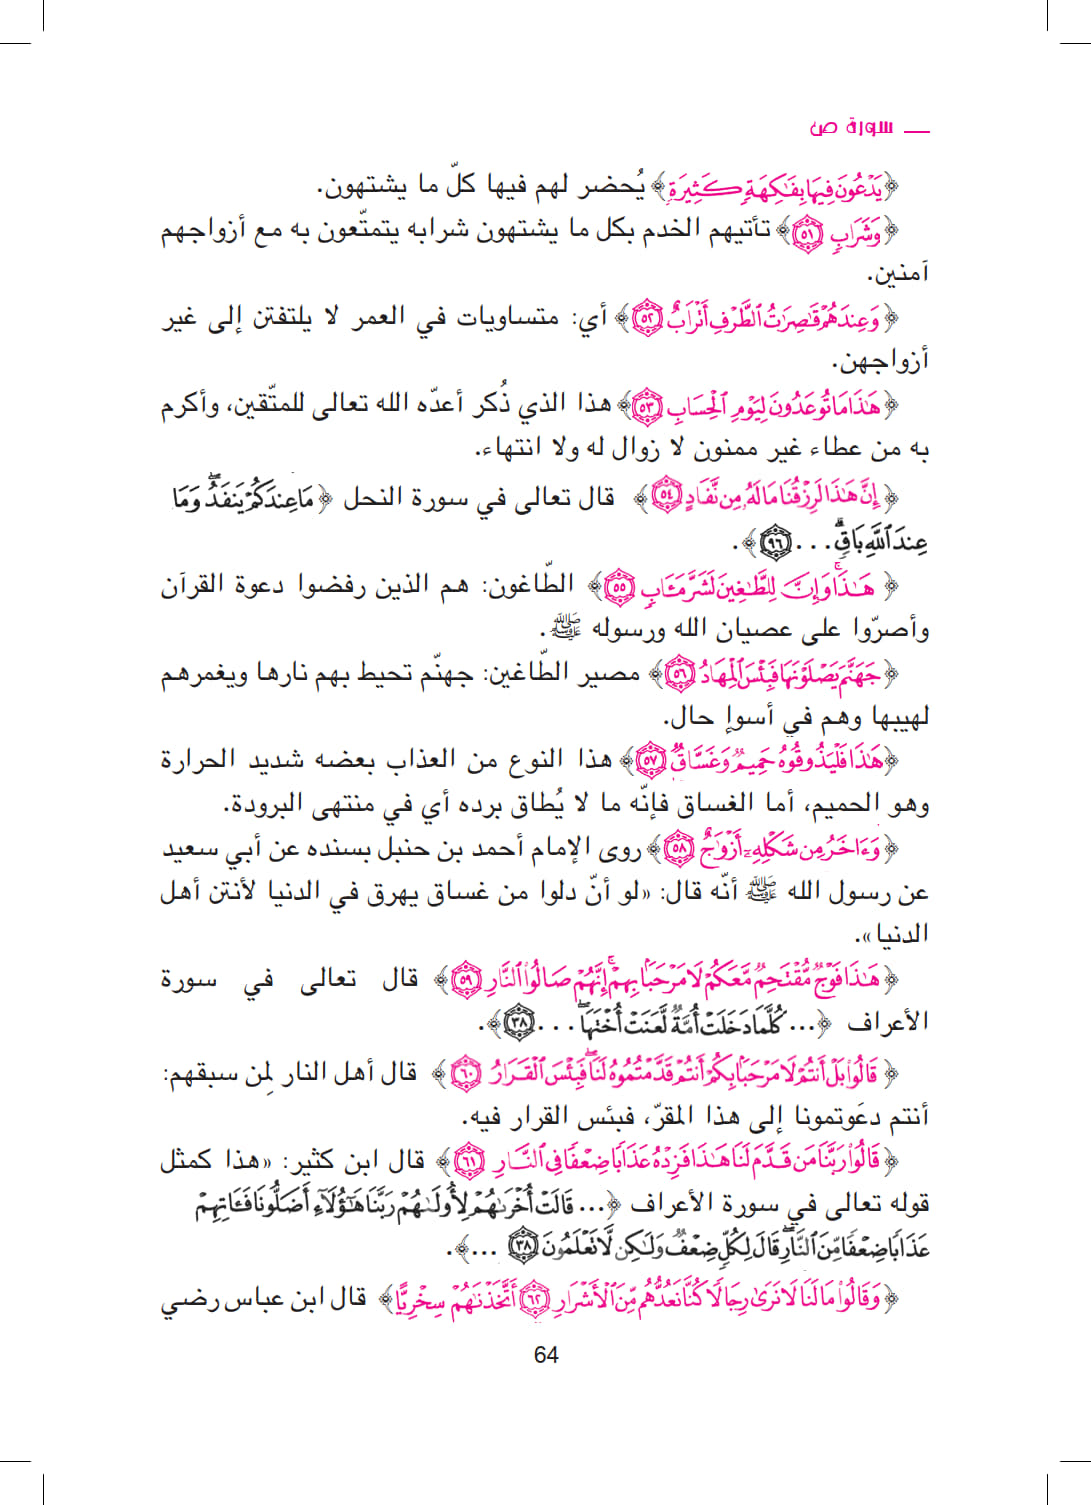 سورة ص
﴿يَدْعُونَ فِيهَا بِفَٰكِهَةٍ كَثِيرَةٍ﴾ يُحضر لهم فيها كلّ ما يشتهون.
﴿وَشَرَابٍ ٥١﴾ تأتيهم الخدم بكل ما يشتهون شرابه يتمتّعون به مع أزواجهم
آمنين.
﴿وَعِندَهُمْ قَٰصِرَٰتُ ٱلطَّرْفِ أَتْرَابٌ ٥٢﴾ أي: متساويات في العمر لا يلتفتن إلى غير
أزواجهن.
﴿هَٰذَا مَا تُوعَدُونَ لِيَوْمِ ٱلْحِسَابِ ٥٣﴾ هذا الذي ذُكر أعدّه الله تعالى للمتّقين، وأكرم
به من عطاء غير ممنون لا زوال له ولا انتهاء.
﴿إِنَّ هَٰذَا لَرِزْقُنَا مَا لَهُۥ مِن نَّفَادٍ ٥٤﴾ قال تعالى في سورة النحل ﴿مَا عِندَكُمْ يَنفَدُ ۖ وَمَا
عِندَ ٱللَّهِ بَاقٍ ۗ ... ٩٦﴾.
﴿هَٰذَا ۚ وَإِنَّ لِلطَّٰغِينَ لَشَرَّ مَـَٔابٍ ٥٥﴾ الطّاغون: هم الذين رفضوا دعوة القرآن
وأصرّوا على عصيان الله ورسوله ﷺ.
﴿جَهَنَّمَ يَصْلَوْنَهَا فَبِئْسَ ٱلْمِهَادُ ٥٦﴾ مصير الطّاغين: جهنّم تحيط بهم نارها ويغمرهم
لهيبها وهم في أسوإ حال.
﴿هَٰذَا فَلْيَذُوقُوهُ حَمِيمٌ وَغَسَّاقٌ ٥٧﴾ هذا النوع من العذاب بعضه شديد الحرارة
وهو الحميم، أما الغساق فإنّه ما لا يُطاق برده أي في منتهى البرودة.
﴿وَءَاخَرُ مِن شَكْلِهِۦٓ أَزْوَٰجٌ ٥٨﴾ روى الإمام أحمد بن حنبل بسنده عن أبي سعيد
عن رسول الله ﷺ أنّه قال: «لو أنّ دلوا من غساق يهرق في الدنيا لأنتن أهل
الدنيا».
﴿هَٰذَا فَوْجٌ مُّقْتَحِمٌ مَّعَكُمْ لَا مَرْحَبًۢا بِهِمْ ۚ إِنَّهُمْ صَالُوا۟ ٱلنَّارِ ٥٩﴾ قال تعالى في سورة
الأعراف ﴿... كُلَّمَا دَخَلَتْ أُمَّةٌ لَّعَنَتْ أُخْتَهَا ۖ ... ٣٨﴾.
﴿قَالُوا۟ بَلْ أَنتُمْ لَا مَرْحَبًۢا بِكُمْ أَنتُمْ قَدَّمْتُمُوهُ لَنَا ۖ فَبِئْسَ ٱلْقَرَارُ ٦٠﴾ قال أهل النار لِمن سبقهم:
أنتم دعَوتمونا إلى هذا المقرّ، فبئس القرار فيه.
﴿قَالُوا۟ رَبَّنَا مَن قَدَّمَ لَنَا هَٰذَا فَزِدْهُ عَذَابًا ضِعْفًا فِى ٱلنَّارِ ٦١﴾ قال ابن كثير: «هذا كمثل
قوله تعالى في سورة الأعراف ﴿... قَالَتْ أُخْرَىٰهُمْ لِأُولَىٰهُمْ رَبَّنَا هَٰٓؤُلَآءِ أَضَلُّونَا فَـَٔاتِهِمْ
عَذَابًا ضِعْفًا مِّنَ ٱلنَّارِ ۖ قَالَ لِكُلٍّ ضِعْفٌ وَلَٰكِن لَّا تَعْلَمُونَ ٣٨ ...﴾.
﴿وَقَالُوا۟ مَا لَنَا لَا نَرَىٰ رِجَالًا كُنَّا نَعُدُّهُم مِّنَ ٱلْأَشْرَارِ ٦٢ أَتَّخَذْنَٰهُمْ سِخْرِيًّا﴾ قال ابن عباس رضي
64